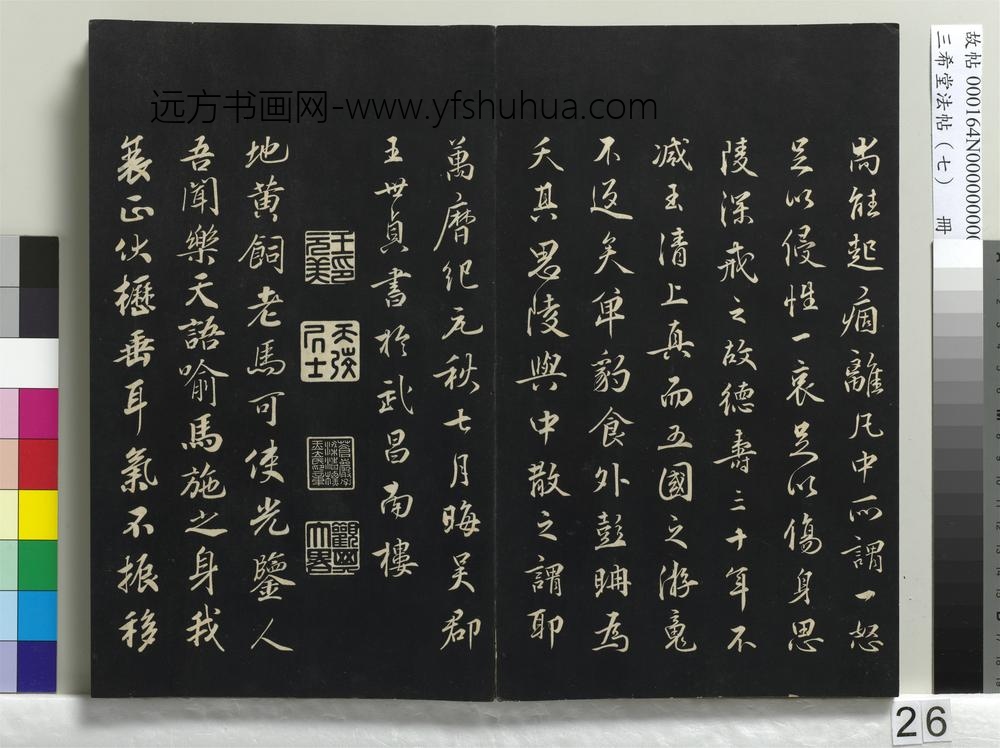 故帖 000164N00000000
三希堂法帖（七） 冊
远方书画网-www.yfshuhua.com
尚能起痼離凡中所謂一怒
足以侵性一哀足以傷身思
陵深戒之故德壽三十年不
减玉清上真而五國之游䰟
不返矣單豹食外彭聃為
夭其思陵與中散之謂耶
萬曆紀元秋七月晦吴郡
王世貞書於武昌南樓
王印元美
天弢居士
觀其大略
地黄飼老馬可使光鑒人
吾聞樂天語喻馬施之身我
衰正伏櫪垂耳氣不振移
26